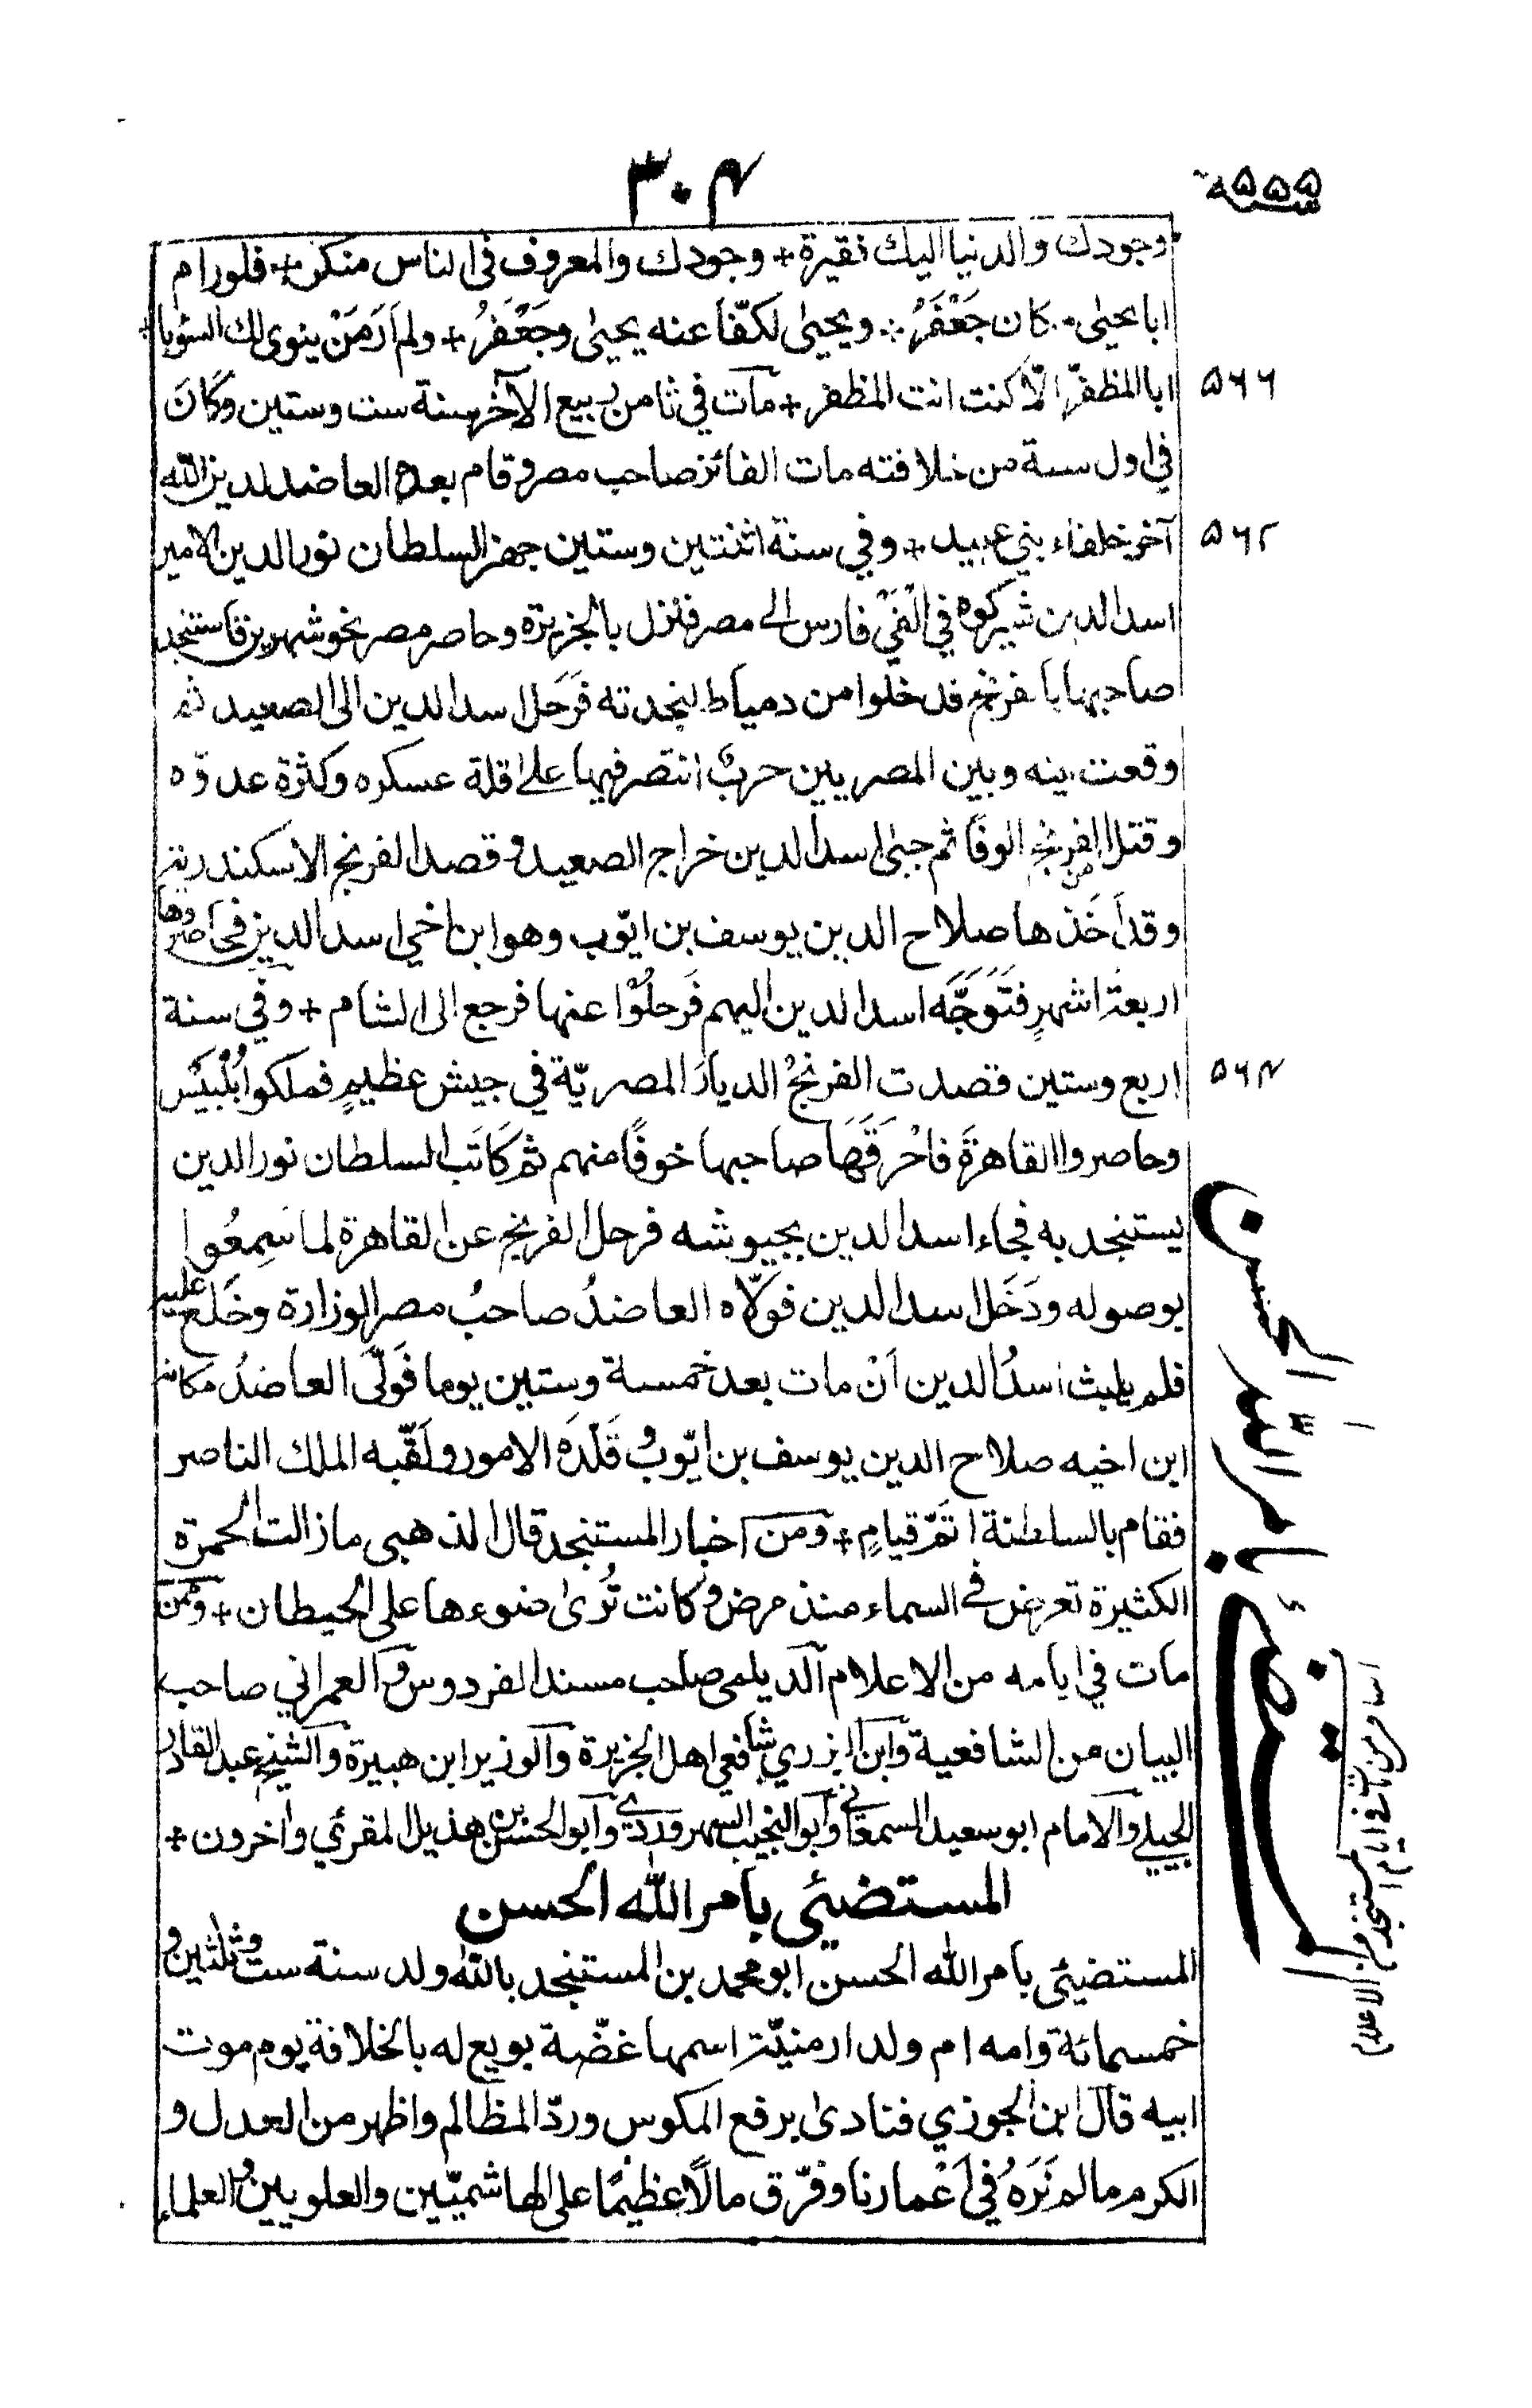 ٣٠٤
سنة ٥٥٥
وجودك والدنيا اليك فقيرة + وجودك والمعروف في الناس منكر + فلو رام
ابا يحيى - كان جَعْفَرُ + ويحيىٰ لكفّا عنه يحيىٰ وجَعْفَرُ + ولم اَرَ مَنْ ينوى لك السُّوء يا +
ابا المظفّر اِلّا كنت انت المظفر + مات في ثامن ربيع الآخر سنة ست وستين وكَانَ
٥٦٦
في اول سنة من خلافته مات الفائز صاحب مصر وقام بعده العاضد لدين الله
آخر خلفاء بني عبيد + وفي سنة اثنتين وستين جهز السلطان نور الدين الامير
٥٦٢
اسد الدين شيركوه في اَلْفَيْ فارس الى مصر فنزل بالجزيزة وحاصر مصر نحو شهرين فاستنجد
صاحبها بالفرنج فدخلوا من دمياط لنجدته فَرَحَل اسد الدين الى الصعيد ثم
وقعت بينه وبين المصريين حربٌ انتصر فيها علىٰ قلة عسكره وكثرة عدوّه
وقتل من الفرنج الوفًا ثم جبىٰ اسد الدين خراج الصعيد وقصد الفرنج الاسكندرية
وقد اَخَذها صلاح الدين يوسف بن ايّوب وهو ابن اخي اسد الدين فحاصروها
اربعة اشهرٍ فتَوَجَّه اسد الدين اليهم فَرحلُوْا عنها فرجع الى الشام + وفي سنة
اربع وستين قصدت الفرنجُ الديارَ المصريّة في جيش عظيمٍ فملكوا بُلْبَيْس
٥٦٤
وحاصروا القاهرةَ فاحْرَقَهَا صاحبها خوفًا منهم ثم كَاتَب السلطان نور الدين
يستنجد به فجاء اسد الدين بجيوشه فرحل الفرنج عن القاهرة لما سَمِعُوا
بوصوله ودَخَل اسد الدين فولّاه العاضدُ صاحبُ مصر الوزارة وخَلَع عليه
فلم يلبث اسدُ الدين اَنْ مات بعد خمسة وستين يوما فَوَلّى العاضدُ مكانه
ابن اخيه صلاح الدين يوسف بن ايّوب وُ قَلّدَه الامور ولَقّبه الملك الناصر
فقام بالسلطنة اَتَمّ قيامٍ + ومن اخبار المستنجد قال الذهبى ما زالت الحمرة
الكثيرة تعرض في السماء منذ مرض وكانت تُرىٰ ضوءها على الحيطان + وممن
مات في ايامه من الاعلام الديلمى صاحب مسند الفردوس والعمراني صاحب
البيان من الشافعية وابن البزري شافعي اهل الجزيرة والوزير ابن هبيرة والشيخ عبد القادر
الجيلي والامام ابو سعيد السمعاني وابو النجيب السهروردي وابو الحسن بن هذيل المقرئ واخرون +
المستضيئ بامر الله الحسن
المستضيئ بامر الله الحسن ابو محمد بن المستنجد بالله ولد سنة ست وثلثين و
خمسمائة وامه ام ولد ارمنيّة اسمها غضّة بويع له بالخلافة يوم موت
ابيه قال ابن الجوزي فنادىٰ برفع المكوس وردّ المظالم واظهر من العدل و
الكرم ما لم نَرَهُ في اَعْمارنا وفرّق مالًا عظيمًا على الهاشميّين والعلويين والعلماء
المستضيئ بامر الله الحسن
اسماء من مات في ايام المستنجد من الاعلام